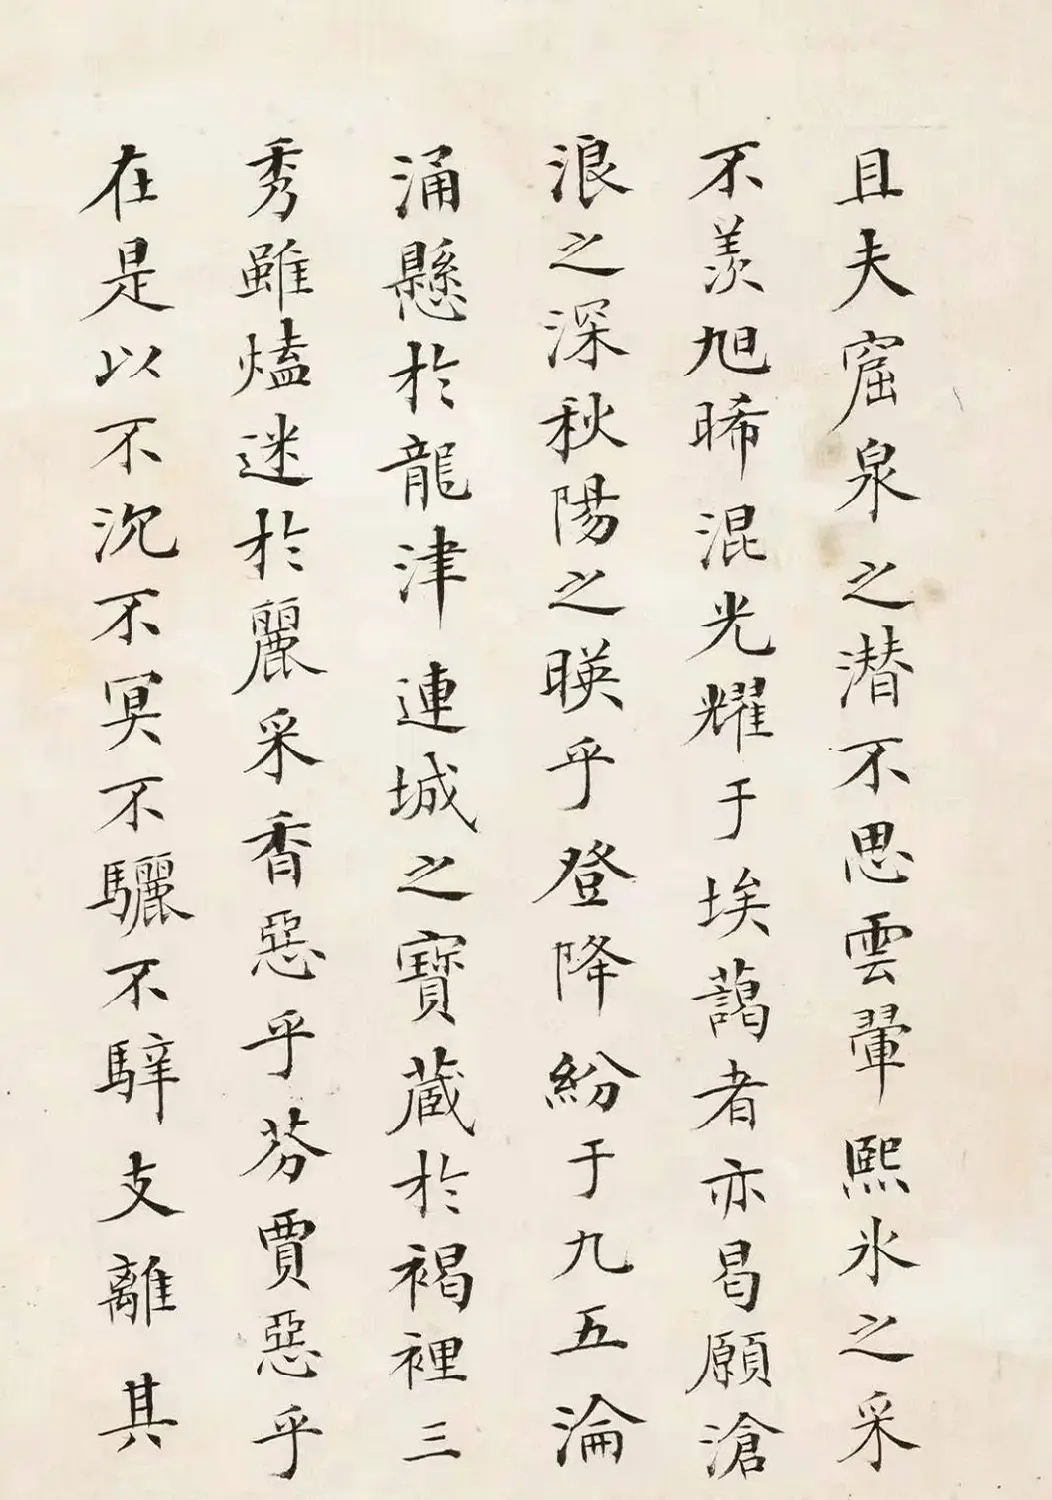 且夫窟泉之潜不思雲翬熙氷之采
不羨旭晞混光耀于埃藹者亦曷願滄
浪之深秋陽之暎乎登降紛于九五淪
涌懸於龍津連城之寶蔵於褐裡三
秀雖熆迷於麗采香惡乎芬賈惡乎
在是以不沉不冥不驪不騂支離其